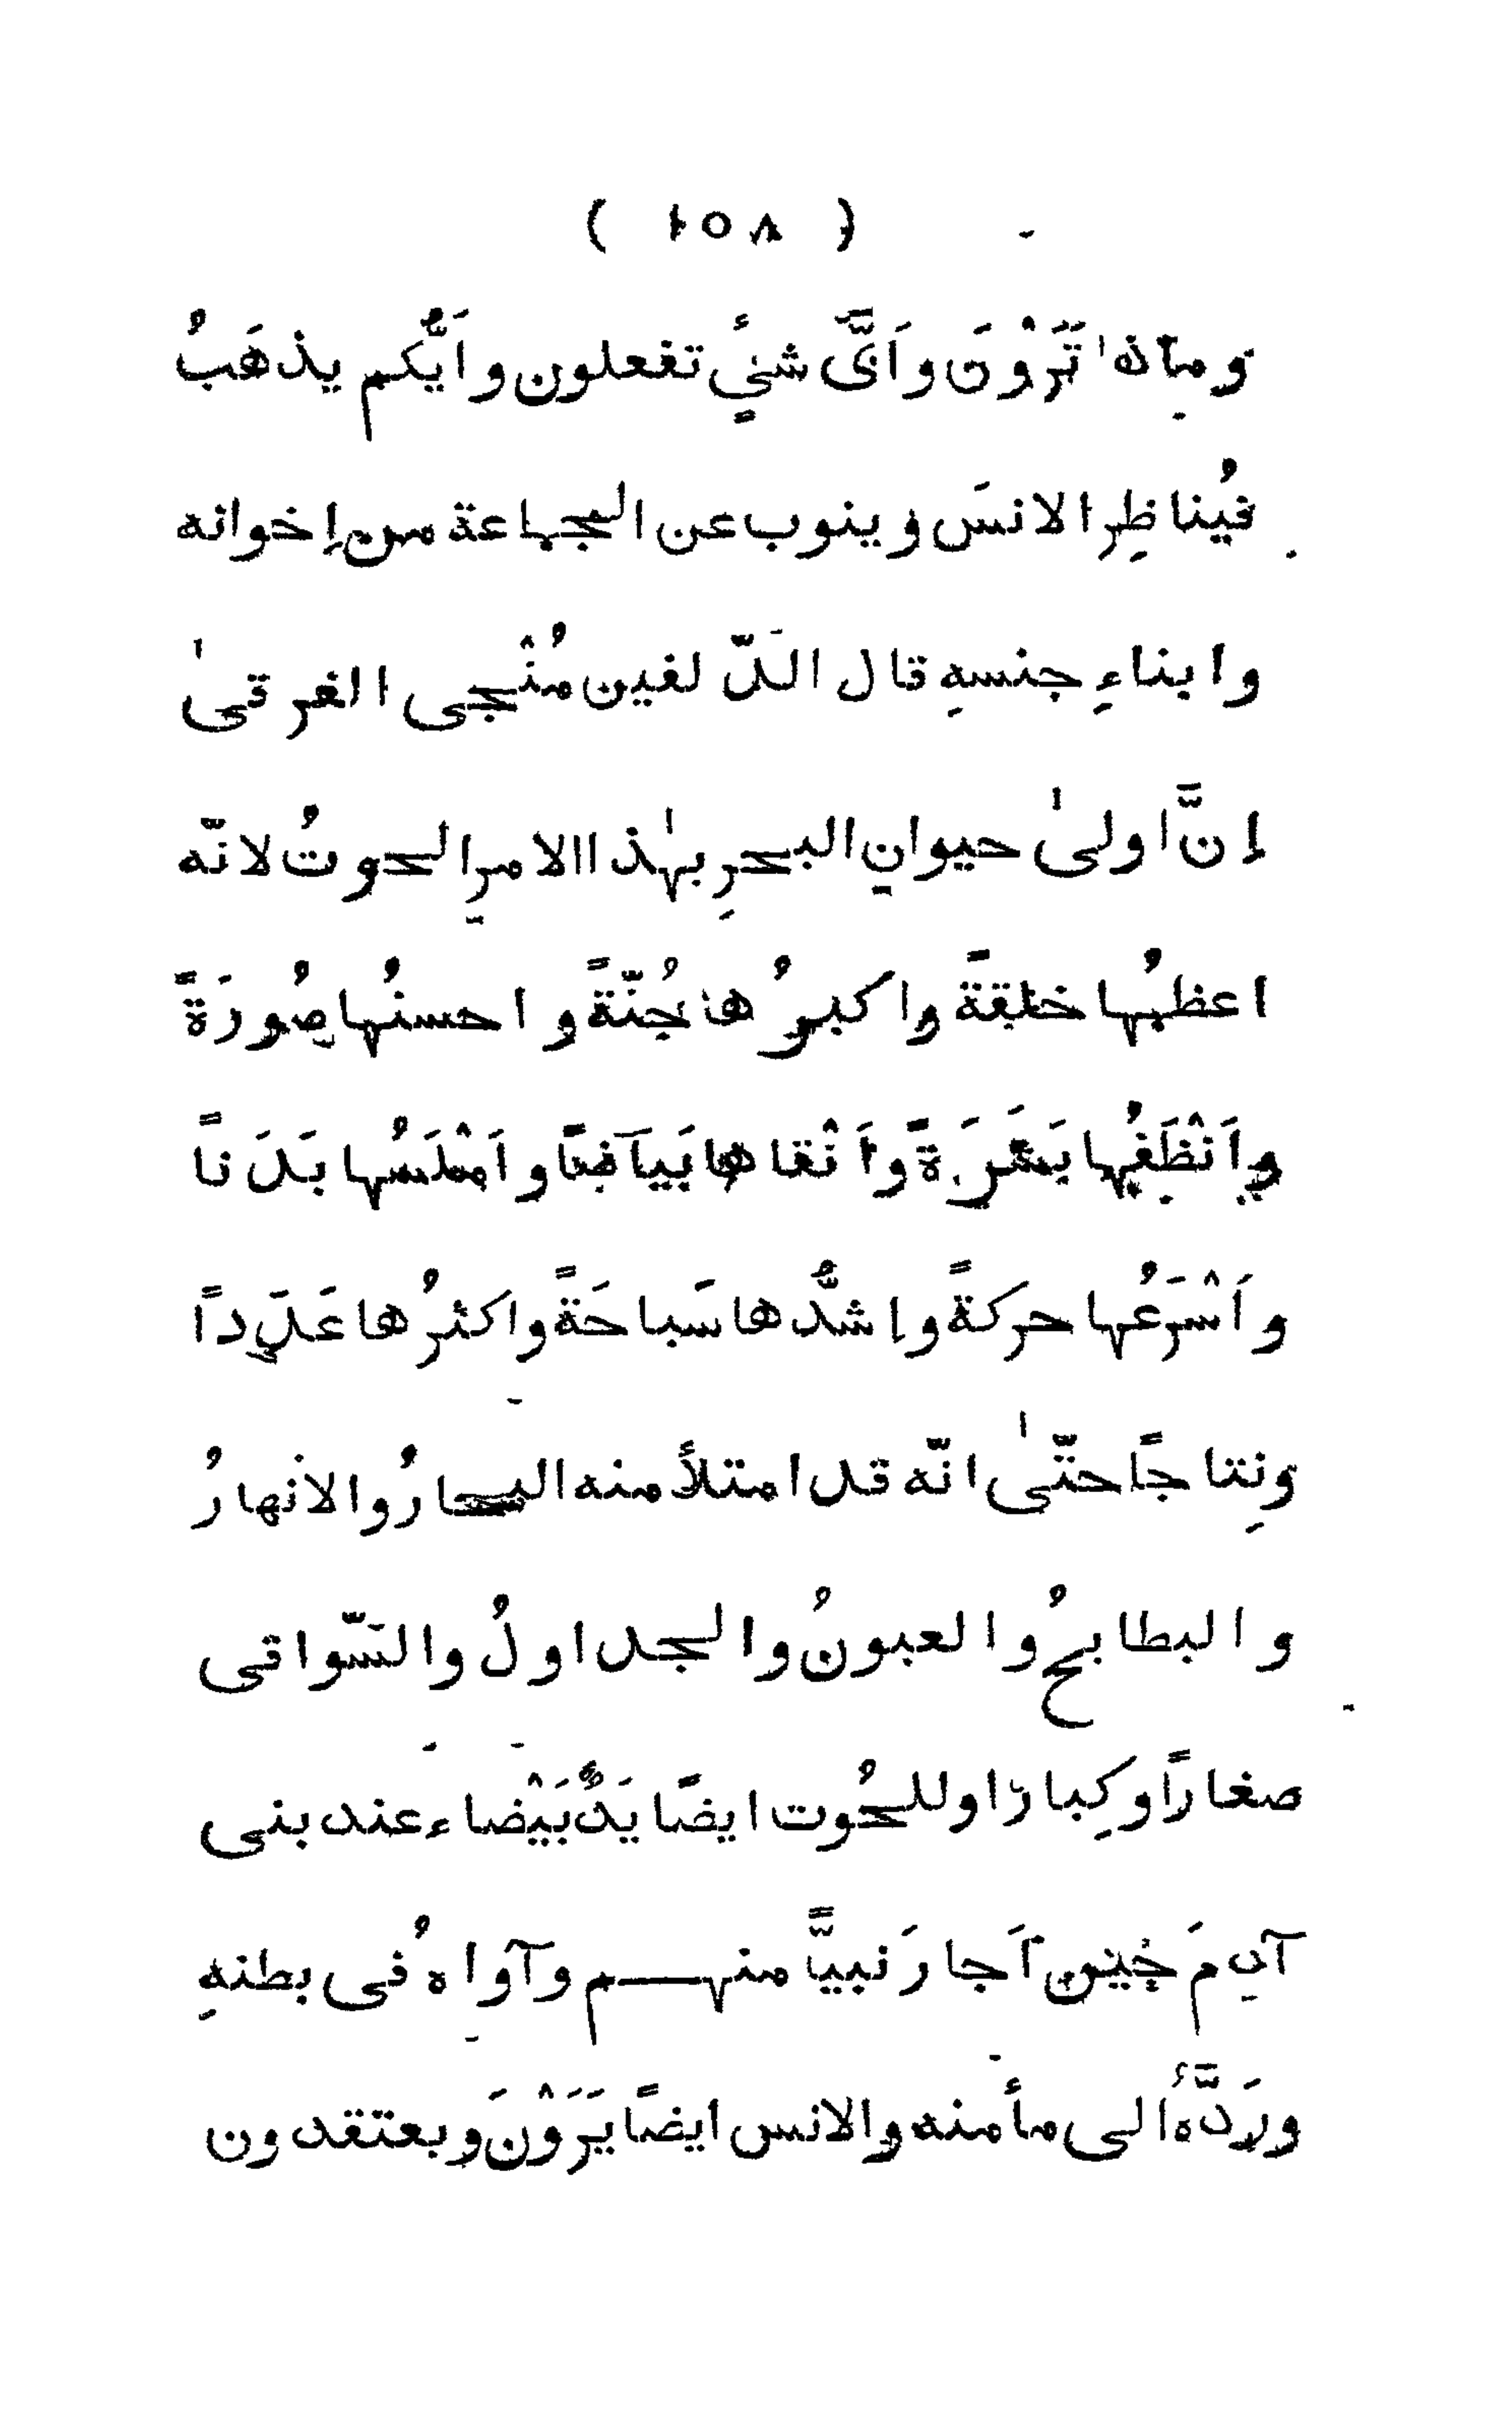 ( ١٥٨ )
وماذا تَرَوْنَ وَاَیَّ شئٍ تفعلون واَیُّکم یذهَبُ
فیُناظِر الانسَ وینوب عن الجماعة من اِخوانه
وابناءِ جنسهِ قال الدّلفین مُنْجی الغرقیٰ
اِنَّ اولیٰ حیوانِ البحرِ بهٰذا الامرِ الحوتُ لانّه
اعظمُها خلقةً واکبرُها جُثّةً واحسنُها صُورَةً
واَنْظَفُها بَشَرَةً واَنْقاها بَیاَضًا واَمْلَسُها بَدَناً
واَسْرَعُها حرکةً واشدُّها سَباحَةً واکثرُها عَدَداً
ونِتاجًا حتّیٰ انّه قد امتلأ منه البحارُ والانهارُ
والبطایحُ والعیونُ والجداولُ والسّواقی
صغارًا وکِبارًا وللحُوت ایضًا یَدٌ بَیْضاء عند بنی
آدمَ حین اَجارَ نبیًّا منهم وآواهُ فی بطنهِ
ورَدَّهُ الی مأمنه والانس ایضًا یَرَوْنَ ویعتقدون